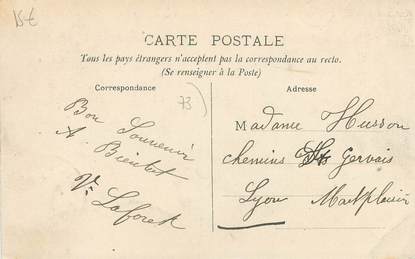 15€
CARTE POSTALE
Tous les pays étrangers n'acceptent pas la correspondance au recto.
(Se renseigner à la Poste)
Correspondance
73
Bon Souvenir
A Bientot
Vr Laforest
Adresse
Madame Husson
chemins Sts Gervais
Lyon Montplaisir